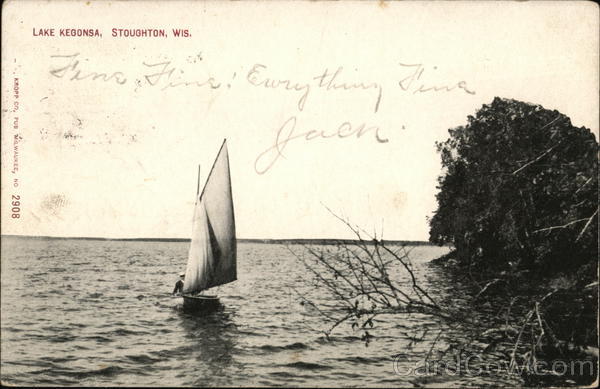 LAKE KEGONSA, STOUGHTON, WIS.
Fine Fine! Everything Fine
Jack
KROPP PUB MILWAUKEE, NO 2908
CardCow.com